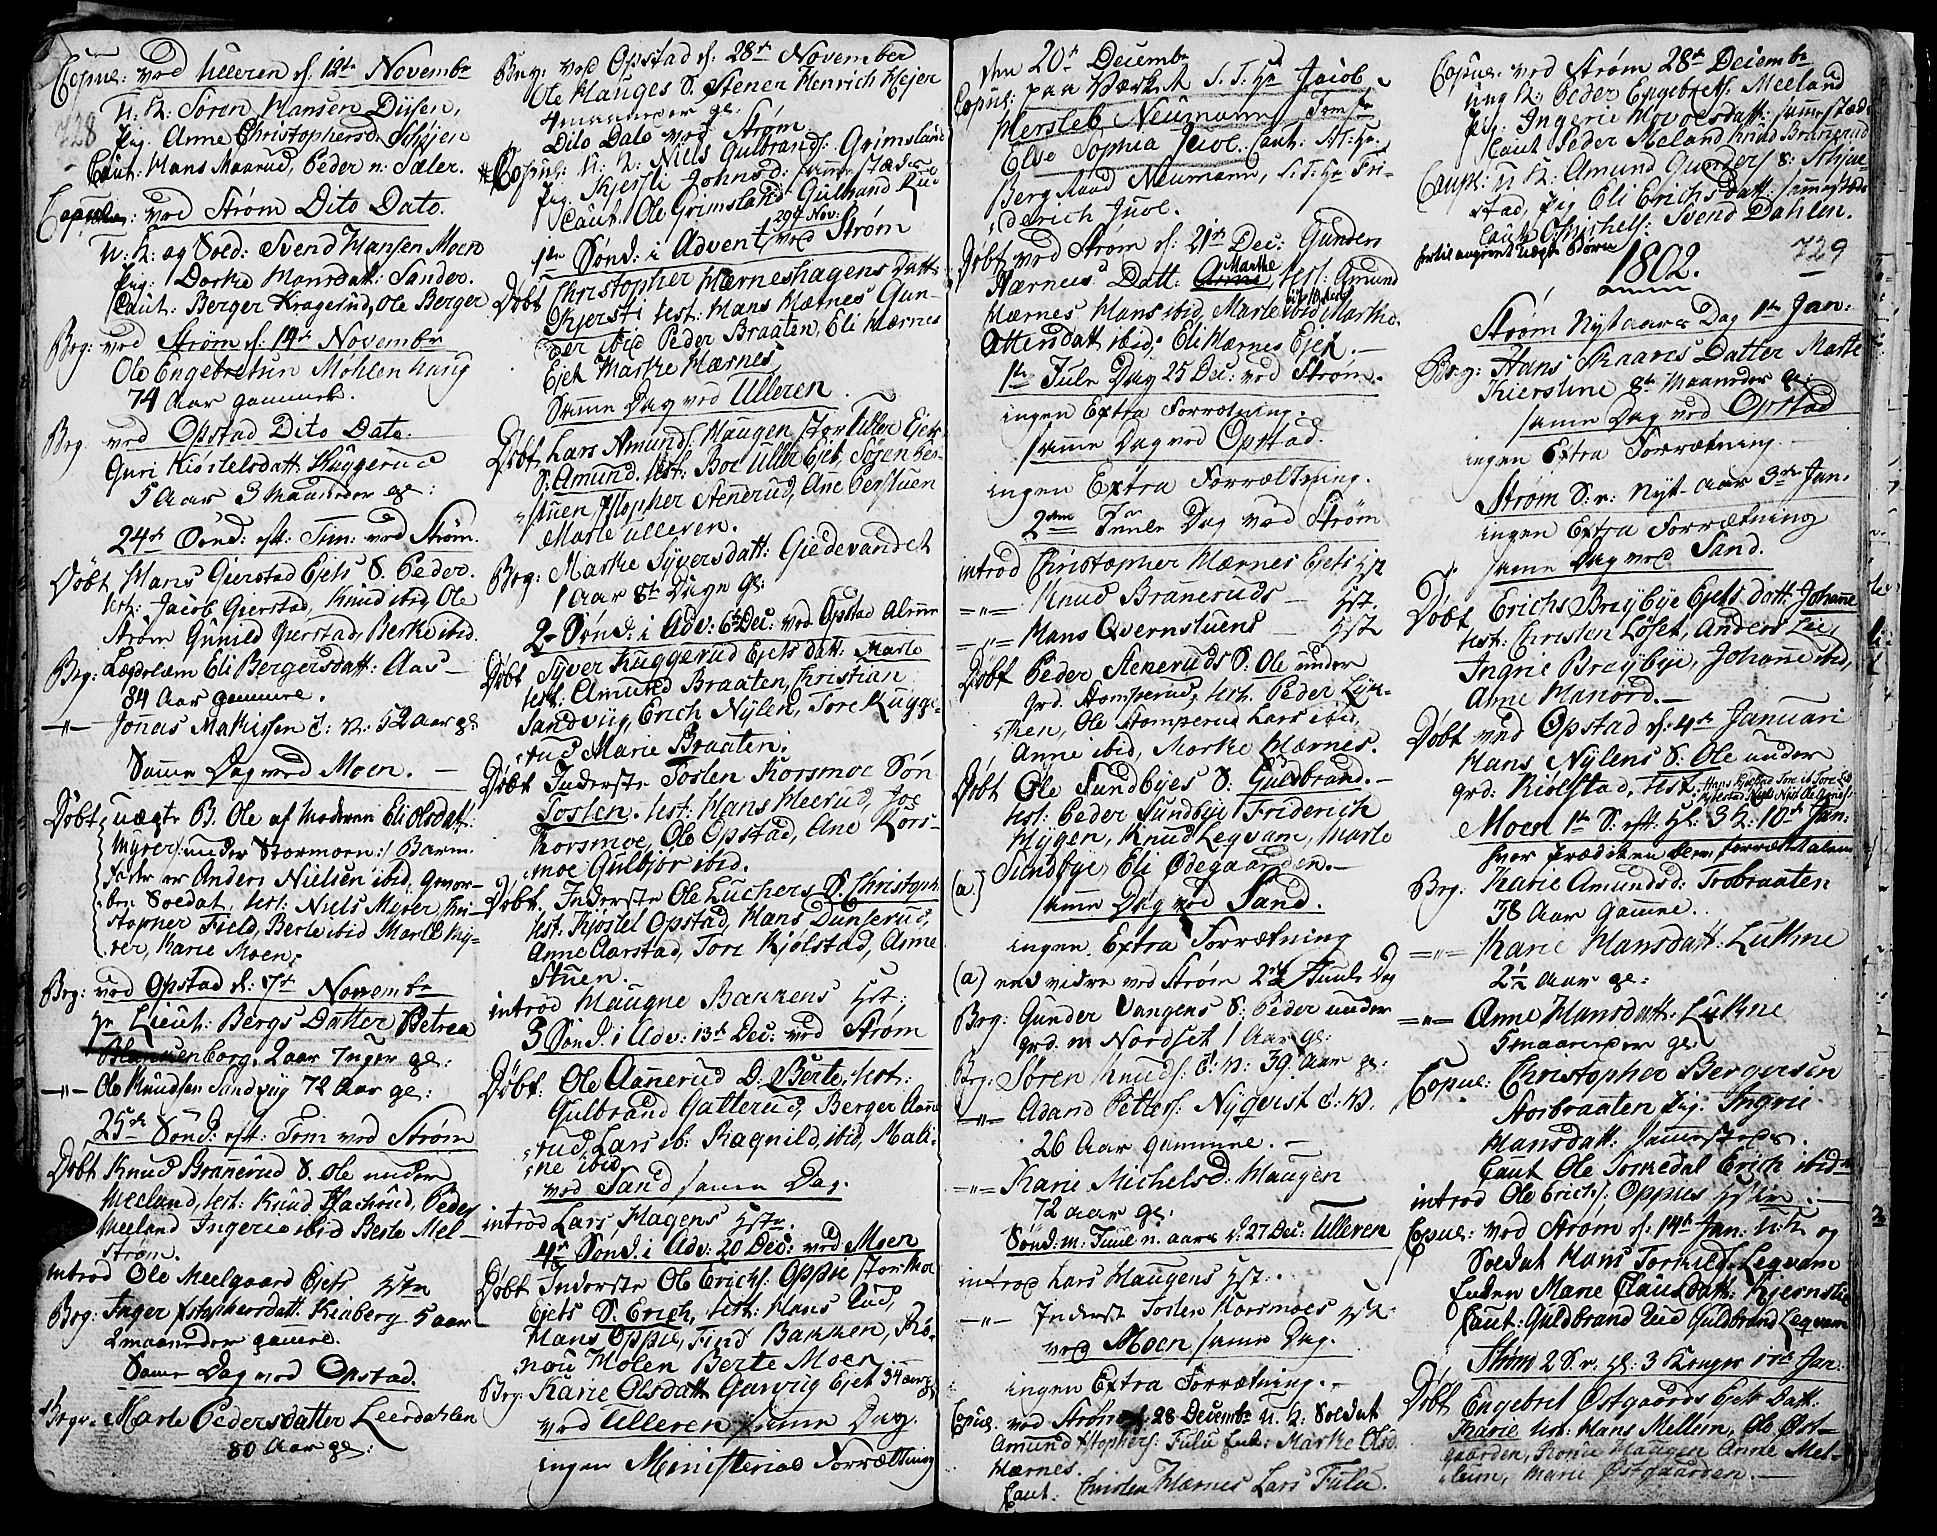 Copul: ved Ulleren d. 12te Novembr
728
U: K: Søren Hansen Diisen,
Pig. Anne Christophersd. Schøjen
Caut: Hans Maarud, Peder n: Sæler.
Copul: ved Strøm Dito Dato.
U: K: og Sold: Svend Hansen Moen
Pig: Dorke Monsdatt: Sander.
Caut: Berger Kragerud, Ole Berger
Beg: ved Strøm d. 14de Novembr
Ole Engebretsen Møhlenhaug
74 Aar gammel.
Beg ved Opstad Dito Dato.
Guri Kiøstelsdatt: Kuggerud
5 Aar 3 Maaneder ge:
24de Sønd: eft: Trin: ved Strøm.
Døbt Hans Gierstad Ejets S. Peder.
test: Jacob Gierstad, Knud ibid Ole
Strøm Gunild Gierstad, Berthe ibid.
Beg: Lægdslem Eli Bergersdatt: Aas
84 Aar gamme.
-"- Jonas Mathisen E: K: 52 aar ge
Samme Dag ved Moen.
Døbt uægte B. Ole af Moderen Eli Olsdatt:
Myrer/: under Stormoen:/ Barn-
fader er Anders Nielsen ibid, gevor-
ben Soldat, test: Niels Myrer, Chri-
stopher Field, Berte ibid Marte My-
rer, Karie Moen.
Beg: ved Opstad d: 7de Novembr
Hr Lieut: Bergs Datter Petrea
Blanuenborg, 2 aar Inger ge:
-"- Ole Knudsen Sandviig 72 Aar ge:
25de Sønd: eft: Trin ved Strøm
Døbt Knud Branerud S. Ole under
Meeland, test: Knud Hachrud, Peder
Meeland Ingerie ibid Berte Mel-
strøm.
introd Ole Meelgaard Ejets Hstr
Beg: Inger Xstophersdatt. Kiaberg 5 aar
2 maaneder gamme.
Samme Dag ved Opstad.
Begr: Marte Pedersdatter Leerdahlen
80 Aar ge:
Beg: ved Opstad d. 28de November
Ole Hauges S. Stener Henrich Hejer
4 maaneder ge.
Dito Dato ved Strøm
Copul: U: K: Niels Gulbrands: Grimsland
Pig. Kjersti Johnsd: sammestæder
Caut: Ole Grimsland, Gulbrand Rud
1ste Sønd: i Advent 29de Nov: ved Strøm
Døbt Christopher Hærneshagens Datt:
Kjersti test: Hans Hærnes Gun-
der ibid Peder Braaten, Eli Hærnes
Ejet Marthe Hærnes
Samme Dag ved Ulleren
Døbt Lars Amunds: Haugen Stor Uller Ejets
S. Amund. test: Boe Uller Ejet, Søren Ber-
stuen Xstopher Stenerud, Ane Berstuen
Marte Ulleren.
Beg: Marthe Syversdatt: Giedevandet
1 Aar 8te Dage ge:
2 Sønd: i Adv: 6te Dec: ved Opstad Alene
Døbt Syver Kuggerud Ejets Datt: Marte
test: Amund Braaten, Christian
Sandviig, Erich Nylen, Tore Kugge-
rud Marie Braaten.
Døbt Inderste Tosten Korsmoe Søn
Tosten. test: Hans Heerud, Jos
Korsmoe, Ole Opstad, Ane Kors-
moe Gulbjør ibid.
Døbt Inderste Ole Luchers S. Christoph:
test: Kjøstel Opstad, Hans Dunserud,
Anne Aarstad, Tore Kjølstad, Anne
Stuen.
introd Haugne Bakkens Hst:
3 Sønd: i Adv: 13de Dec: ved Strøm
Døbt: Ole Aannerud D. Berte, test:
Gulbrand Galterud, Berger Aanne
rud, Lars ib: Ragnild ibid, Mali-
ne ibid
ved Sand samme Dag.
introd Lars Hagens Hstr.
4de Sønd: i Adv: 20 Dec: ved Moen
Døbt Inderste Ole Erichs: Oppie Stormoe
Ejets S. Erich, test: Hans Rud,
Hans Oppie, Find Bakken, Rø-
nou Molen Berte Moen
Beg: Karie Olsdatt: Garviig Ejet 34 aar ge
ved Ulleren samme Dag.
ingen Ministerial Forrætning
den 20de Decembr
Copul: paa Værket S. T: Hr Jacob
Hersleb Neumann Jomfr
Else Sophia Juel. Caut: S: T: Hr
Berg Raad Neumann, S. T: Hr Fri-
derich Juel.
Døbt ved Strøm d: 21de Dec: Gunders
Hærnes Datt: Marthe, test: Amund
Hærnes Hans ibid, Marte ibid Marthe
Ottersdatt ibid: Eli Hærnes Ejet.
1ste Jule Dag 25 Dec: ved Strøm.
ingen Extra Forrætning.
samme Dag ved Opstad.
ingen Extra Forrætning.
2den Juule Dag ved Strøm
introd Christopher Hærnes Ejets Hst
-"- Knud Braneruds Hst.
-"- Hans Qvernstuens Hst
Døbt Peder Steneruds S. Ole under
grd. Stomperud, test. Peder Lyk-
ken, Ole Stomperud Lars ibid,
Anne ibid, Marthe Hærnes.
Døbt Ole Sundbyes S. Guldbrand.
test: Peder Sundbye Friderich
Hyggen, Knud Leqvam, Marte
Sundbye, Eli Ødegaarden.
(a) samme Dag ved Sand.
ingen Extra Forrætning
(a) end videre ved Strøm 2den Juule Dag
Beg: Gunder Vangens S. Peder under
grd. n: Nordset 1 Aar ge:
Beg: Søren Knuds: E: K: 39 Aar ge:
-"- Adand Petters: Nyqvist E: K.
26 Aar gamme.
-"- Karie Michelsd: Haugen
72 aar ge.
Sønd: m: Juul n: aar d: 27 Dec: Ulleren
introd Lars Haugens Hst:
-"- Inderst Tosten Korsmoes Hst:
ved Moen samme Dag.
ingen Extra Forrætning.
Copul ved Strøm d: 28 Decembr U. K: Soldat
Amund Xstophers: Fulu Enk: Marthe Olsd
Hærnes.
Caut: Christen Hærnes Lars Fulu.
Copul: ved Strøm 28de Decembr
ung K: Peder Engebrets: Meeland
Pig: Ingerie Hovolsdatt: sammestæds
Caut Peder Meland Knud Branerud
Copul: U K: Amund Gunders S: Schjue-
stad, Pig Eli Erichsdatt: sammestæds
Caut: Ole Michels: Svend Dahlen.
1802.
729
Strøm Nytaars Dag 1te Jan:
Beg: Hans Skaares Datter Marthe
Kierstine 8te Maaneder ge:
samme Dag ved Opstad
ingen Extra Forrætning.
Strøm S: n: Nyt-Aar 3de Jan.
ingen Extra Forrætning
samme Dag ved Sand.
Døbt Erichs Breybye Ejets Datt: Johanne
test: Christen Løset, Anders Lie,
Ingrie Breybye, Johanne ibid,
Anne Hanord.
Døbt ved Opstad d: 4de Januari
Hans Nylens S: Ole under
grd: Kiølstad, test:
Moen 1te S: eft: H: 3 K: 10de Jan:
hvor Prædiken blev forrættet alene
Beg: Karie Amundsd: Trobraaten
38 Aar gamme.
-"- Karie Hansdatt: Luthne
2½ Aar ge:
-"- Anne Hansdatt: Luthne
5 maaneder ge:
Copul: Christopher Bergersen
Storbraaten Pig: Ingrie
Hansdatt: sammesteds.
Caut Ole Tormedal Erich ibid
introd Ole Erichs: Oppies Hstr.
Copul: ved Strøm d: 14de Jan: U: K og
Soldat Hans Torkilds: Leqvam
Enken Marie Clausdatt: Kjernslie
Caut: Guldbrand Rud Guldbrand Leqvam
Strøm 2 S. n: H: 3 Konger 17de Jan:
Døbt Engebret Østgaards Ejets Datt:
Karie test: Hans Mellem, Ole Øst-
gaarden, Haugen Anne Mel-
lum, Marie Østgaarden.